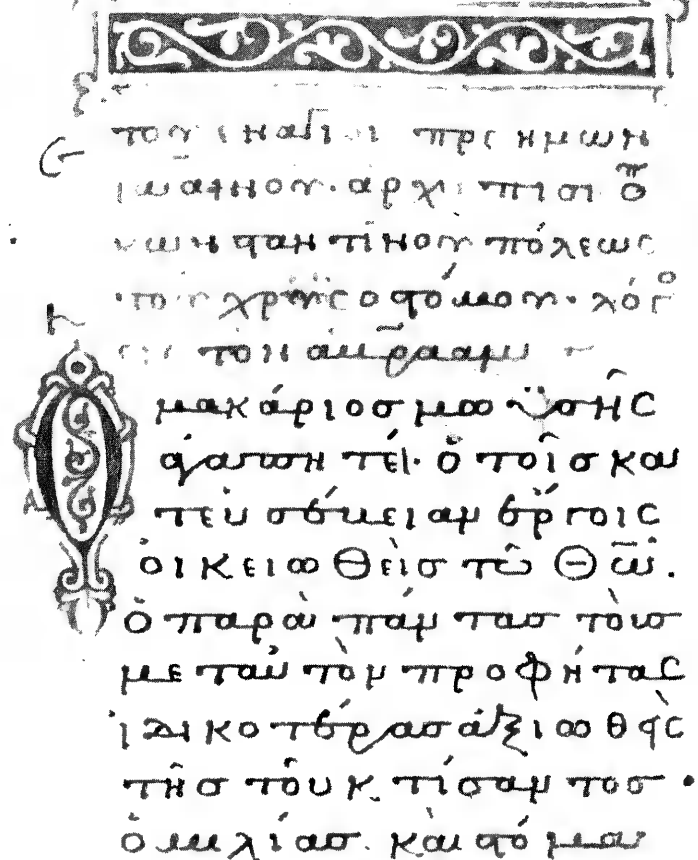 του ἐν ἁγίοι πρς ἡμων
ιωάννου· ἀρχιεπισκόπ
κωνσταντίνου πόλεως
του χρυσοστόμου· λόγο
εις τὸν ἀβραάμ
μακάριος μωϋσῆς
τοῖσ και
εὐσεβείας ἔργοις
οἰκειωθεὶσ τῶ Θῶ.
ὁ παρὰ πάντασ τοὺσ
μετ αὐτὸν προφήτας
ἰδικοτέρασ ἀξιωθεὶς
τῆσ τοῦ κτίσαντοσ
ὁμιλίασ. καὶ στόμα